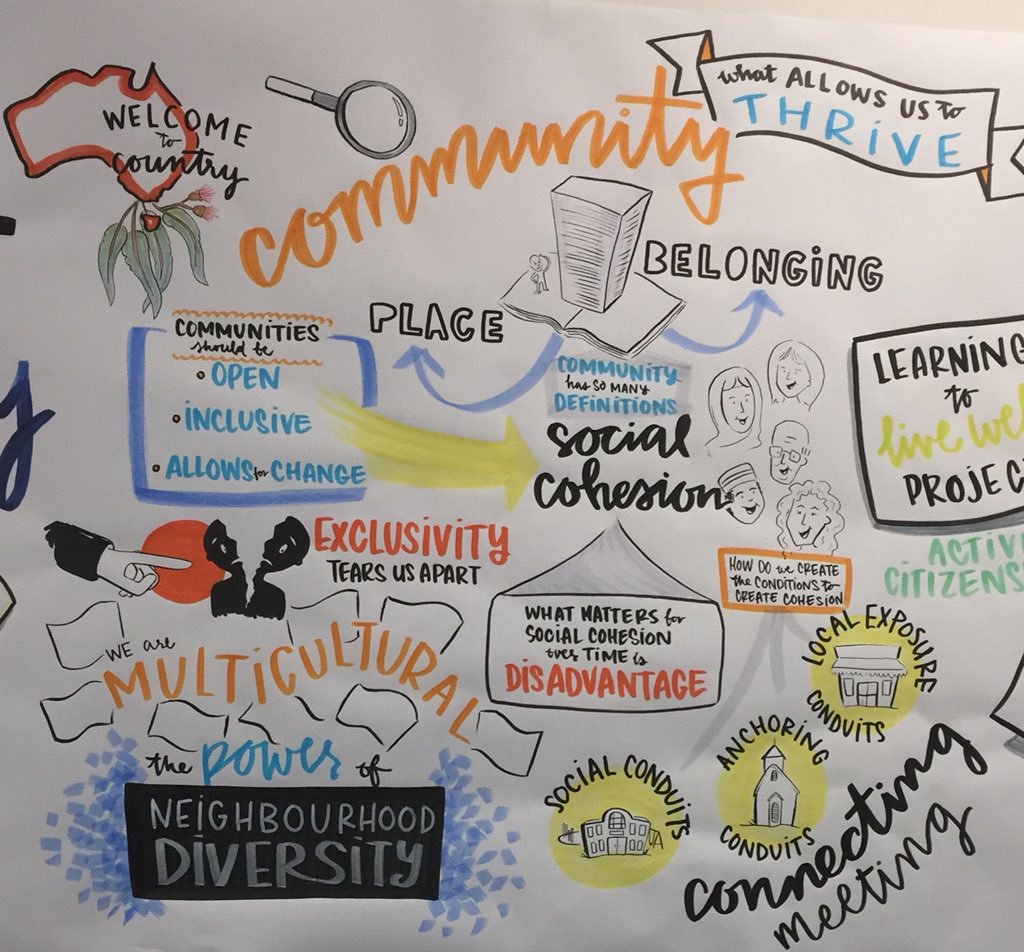 WELCOME
to
country
community
what ALLOWS US to
THRiVE
BELONGiNG
PLACE
COMMUNITIES
should be
• OPEN
• iNCLUSiVE
• ALLOWS for CHANGE
COMMUNITY
has SO MANY
DEFiNiTiONS
social
cohesion
LEARNiNG
to
live well
PROJECT
ACTIVE
EXCLUSIVITY
TEARS US APART
HOW DO we CREATE
the CONDITIONS to
CREATE COHESION
WHAT MATTERS for
SOCIAL COHESION
over TIME is
DiSADVANTAGE
WE are
MULTICULTURAL
the power of
NEiGHBOURHOOD
DiVERSiTY
LOCAL EXPOSURE
CONDUITS
ANCHORING
CONDUITS
SOCIAL CONDUITS
connecting
meeting